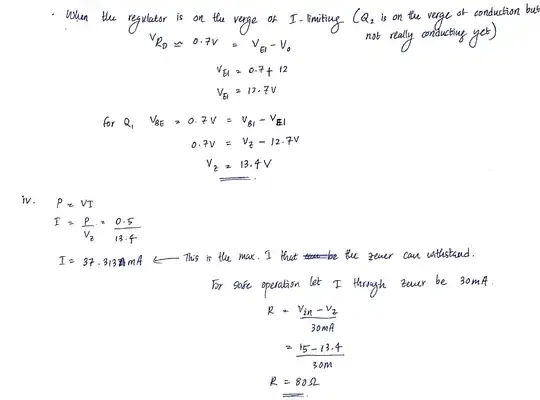 · When the regulator is on the verge of I-limiting (Q2 is on the verge of conduction but
not really conducting yet)
VRD ≃ 0.7V = VE1 - Vo
VE1 = 0.7 + 12
VE1 = 12.7V
for Q1 VBE = 0.7V = VB1 - VE1
0.7V = VZ - 12.7V
VZ = 13.4V
iv. P = VI
I = P/VZ = 0.5/13.4
I = 37.313mA ← This is the max. I that the zener can withstand.
For safe operation let I through zener be 30mA.
R = Vin - VZ / 30mA
= 15 - 13.4 / 30m
R = 80Ω